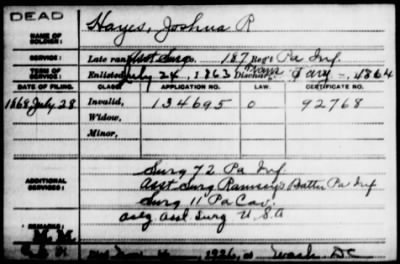 DEAD
NAME OF SOLDIER: Hayes, Joshua R
SERVICE: Late rank, Asst Surg Co. 187 Reg't Pa Inf.
TERM OF SERVICE: Enlisted July 24, 1863 Discharged 1864
DATE OF FILING. CLASS. APPLICATION NO. LAW. CERTIFICATE NO.
1868 July 28 Invalid, 134695 0 92768
Widow,
Minor,
ADDITIONAL SERVICES:
Surg 72 Pa Inf
Asst Surg Ramsey's Battn Pa Inf
Surg 11 Pa Cav.
Asst Surg U.S.A
REMARKS: M.M.
1926, at Wash. DC